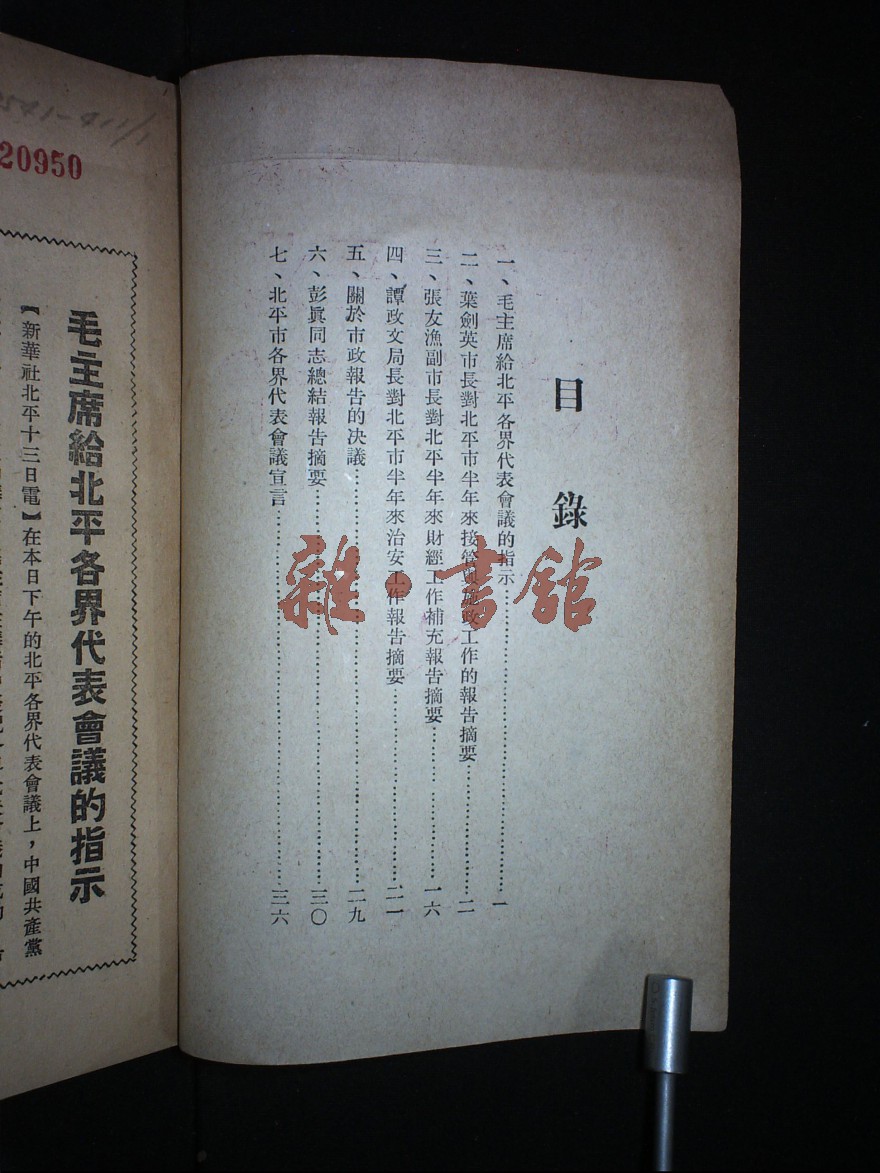 目錄
一、毛主席給北平各界代表會議的指示…………一
二、葉劍英市長對北平市半年來接管與施政工作的報告摘要…………二
三、張友漁副市長對北平半年來財經工作補充報告摘要…………一六
四、譚政文局長對北平市半年來治安工作報告摘要…………二一
五、關於市政報告的决議…………二九
六、彭眞同志總結報告摘要…………三〇
七、北平市各界代表會議宣言…………三六
雜·書館
20950
毛主席給北平各界代表會議的指示
【新華社北平十三日電】在本日下午的北平各界代表會議上，中國共產黨